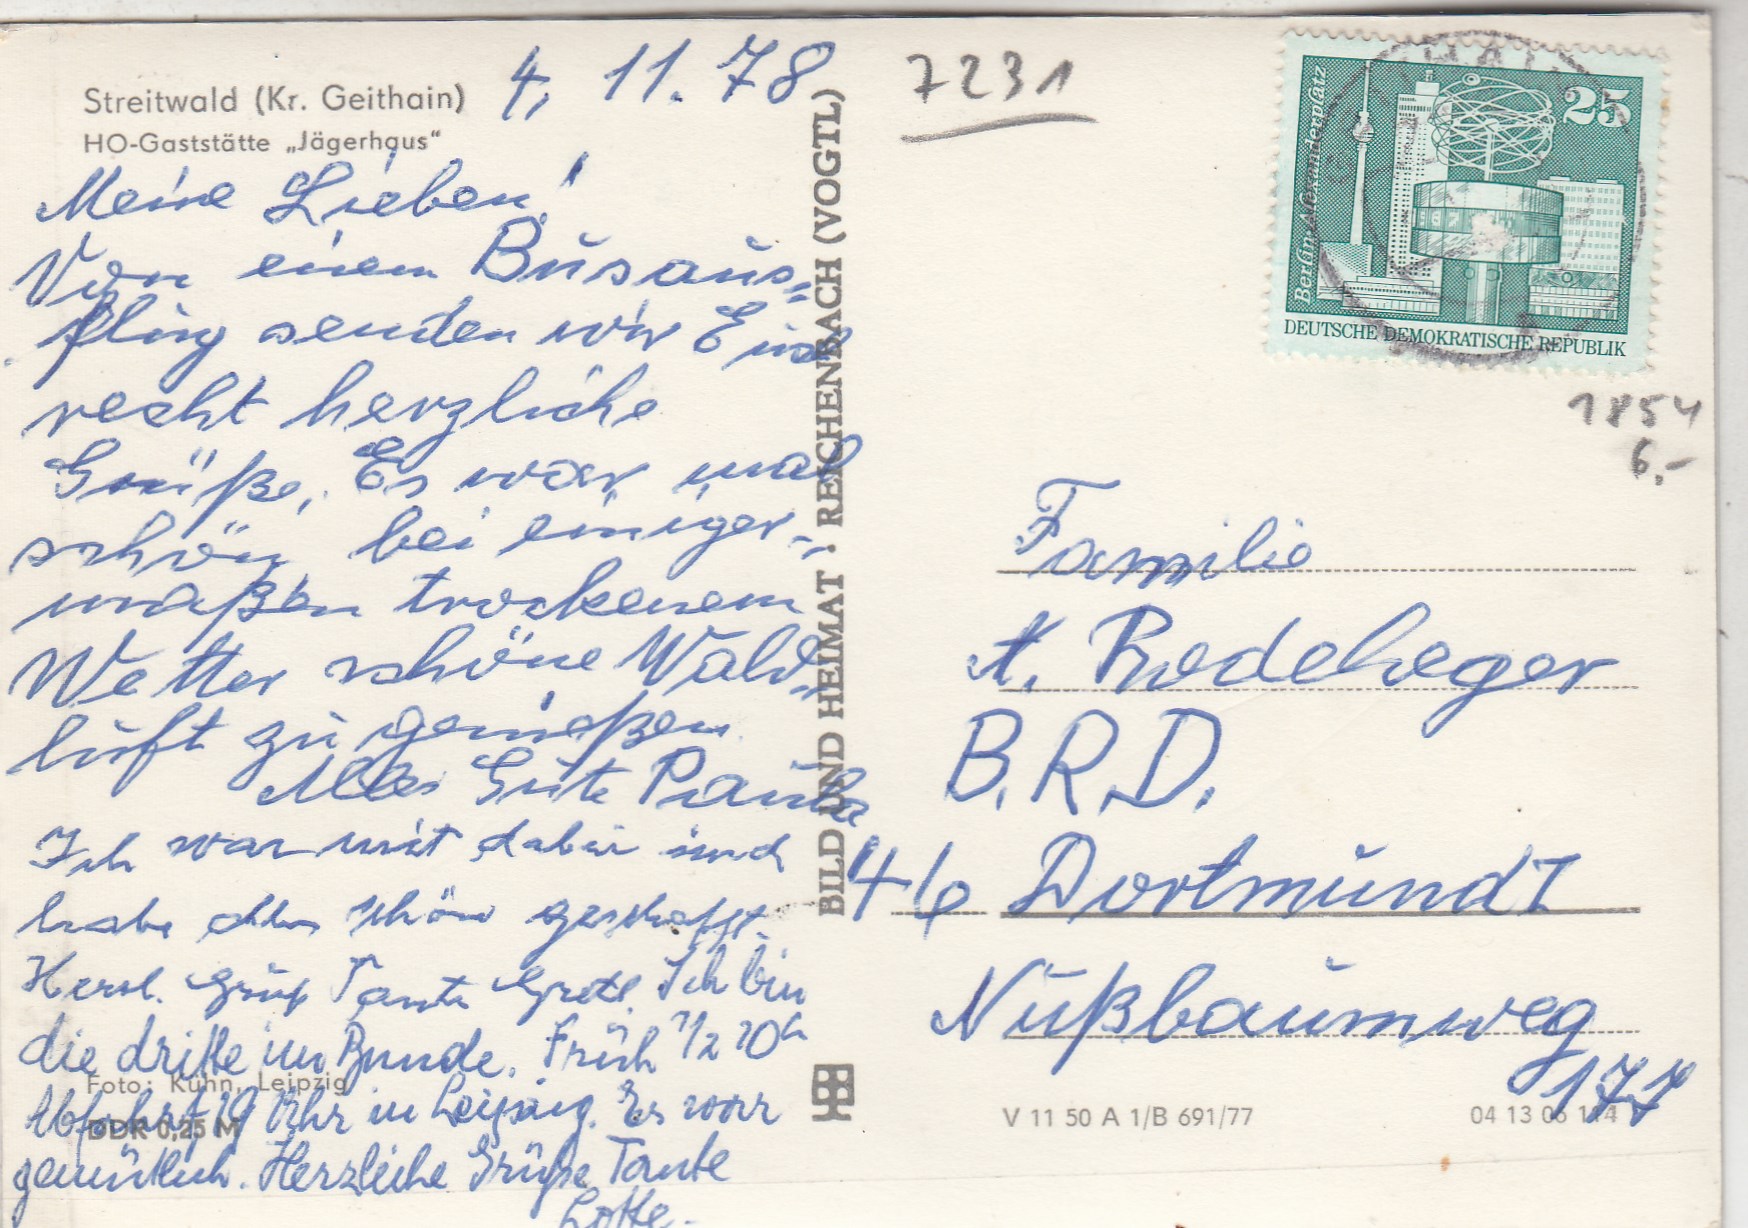 Streitwald (Kr. Geithain)
HO-Gaststätte „Jägerhaus“
4. 11. 78
Meine Lieben!
Von einem Busaus-
flug senden wir Euch
recht herzliche
Grüße. Es war mal
schön bei einiger-
maßen trockenem
Wetter schöne Wald-
luft zu genießen.
Alles Gute Paula
Ich war mit dabei und
habe alles schön geschafft.
Herzl. Grüße Tante Grete. Ich bin
die dritte im Bunde. Früh 1/2 10h
Abfahrt, 19 Uhr in Leipzig. Es war
gemütlich. Herzliche Grüße Tante
Lotte.
Foto: Kühn, Leipzig
DDR 0,25 M
BILD UND HEIMAT · REICHENBACH (VOGTL)
7231
Berlin, Alexanderplatz
25
DEUTSCHE DEMOKRATISCHE REPUBLIK
1854
6.-
Familie
B.R.D.
46 Dortmund 1
Nußbaumweg
177
V 11 50 A 1/B 691/77
04 13 06 114